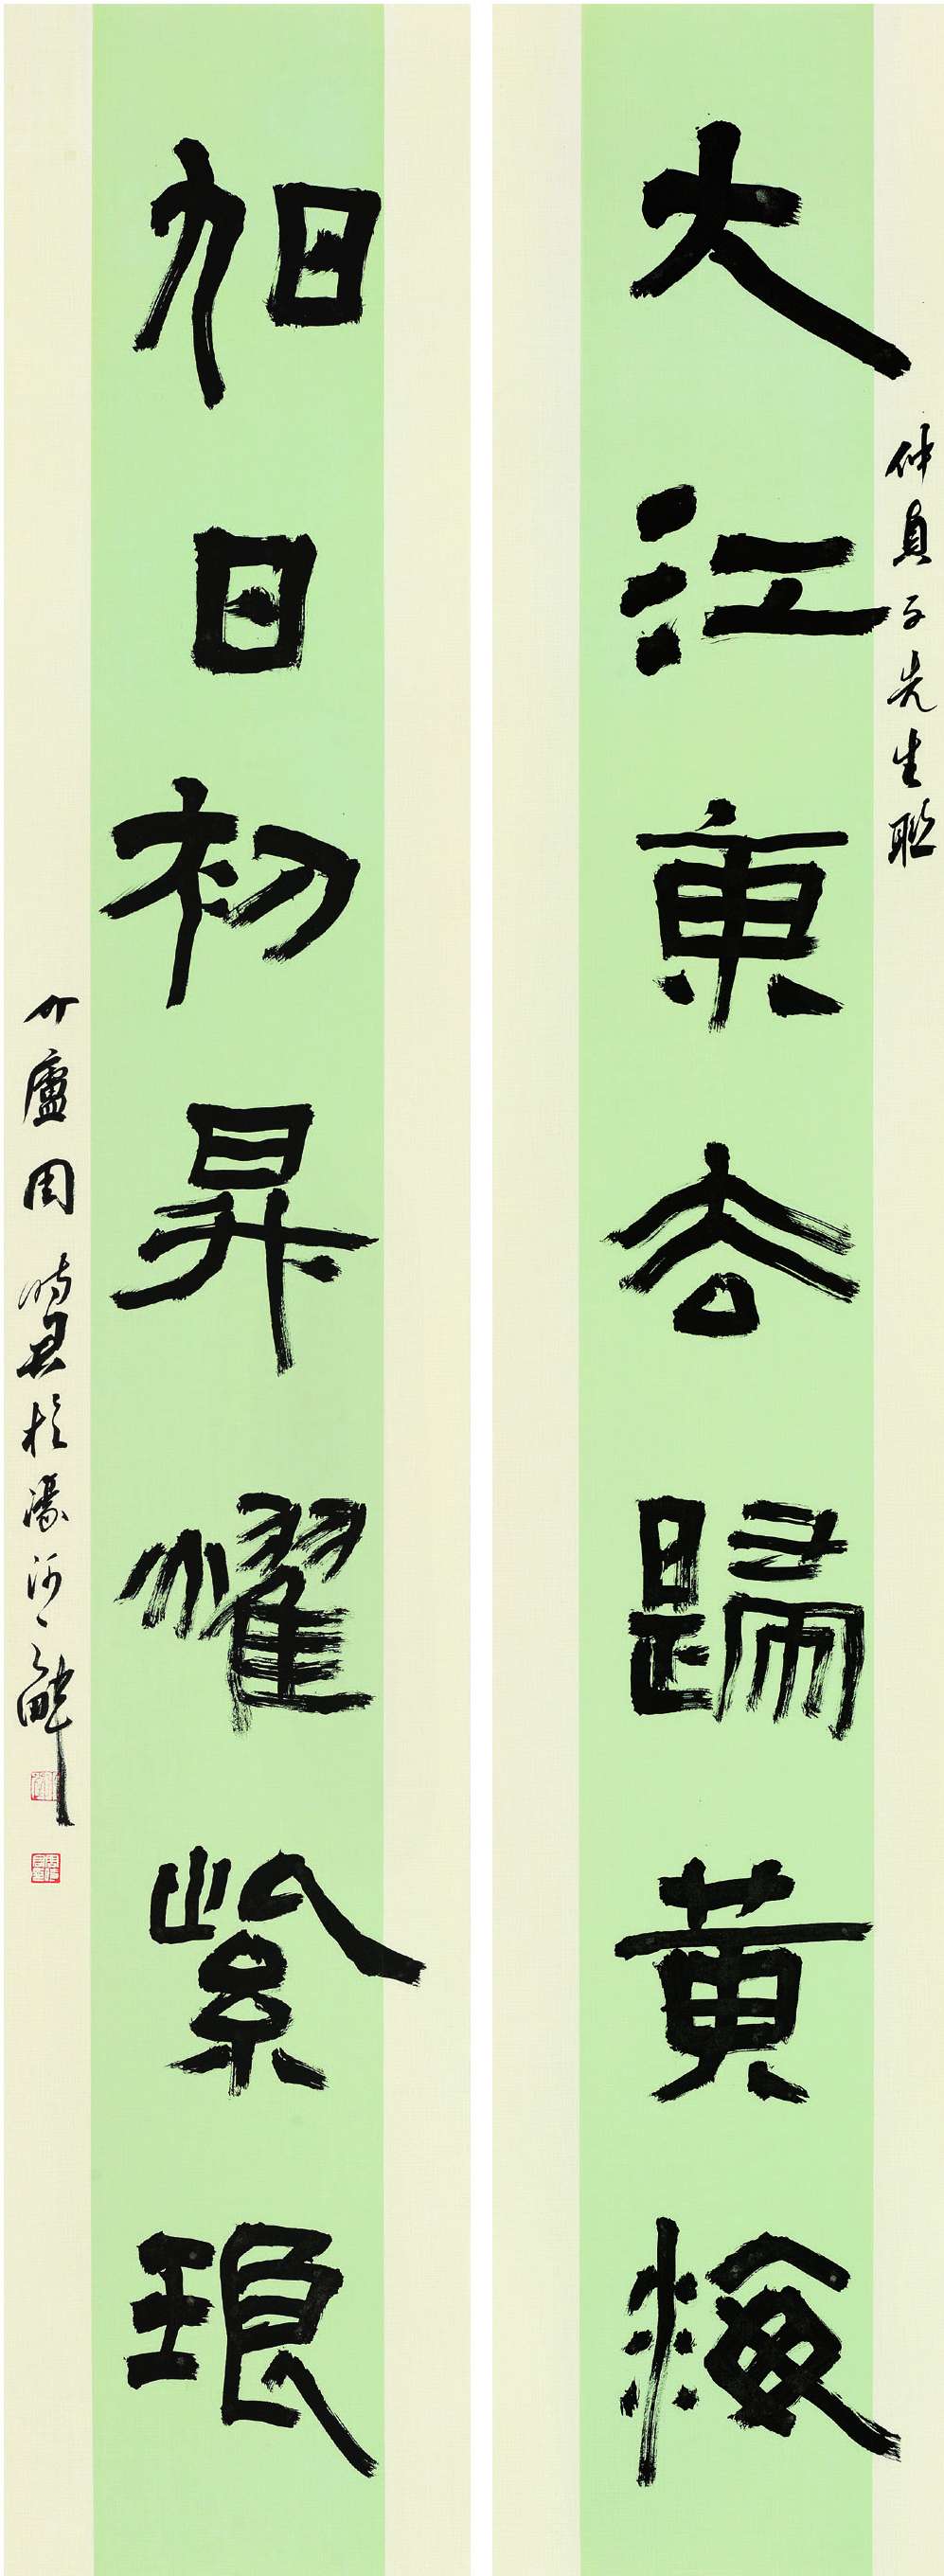 大江東去歸黃海
仲貞子先生聯
旭日初昇耀紫琅
介廬周時君於濠河之畔